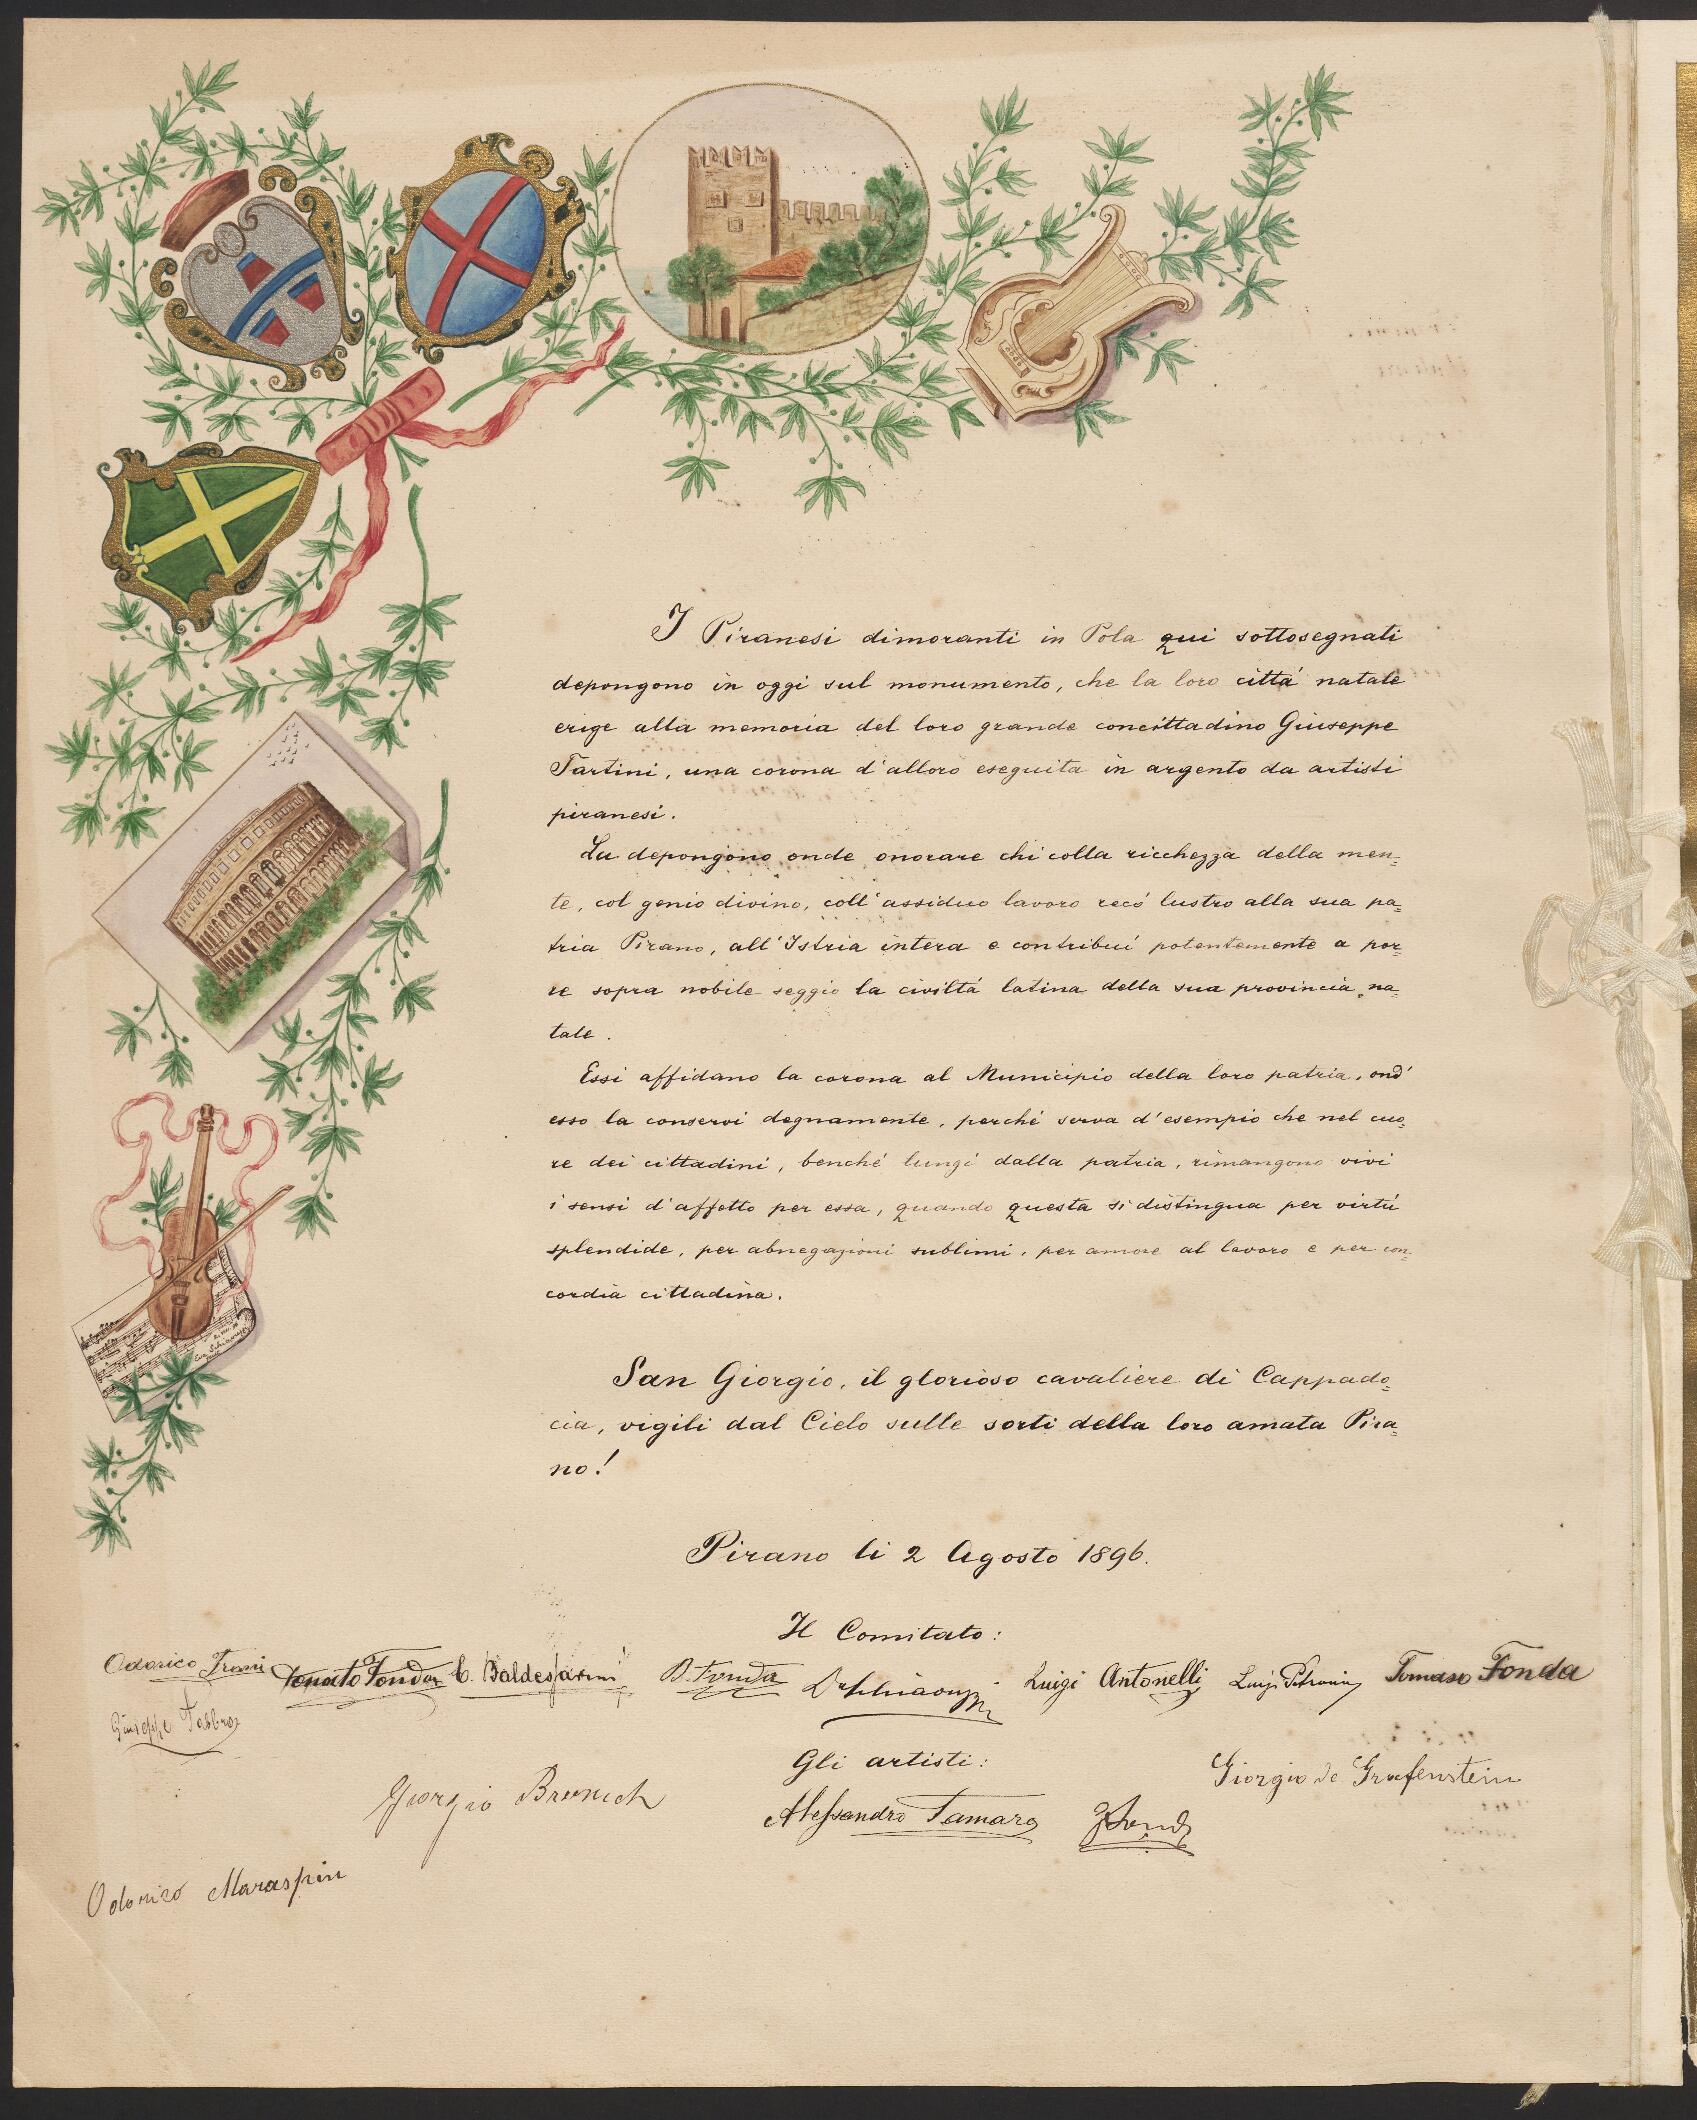 I Piranesi dimoranti in Pola qui sottosegnati
depongono in oggi sul monumento, che la loro cittá natale
erige alla memoria del loro grande concittadino Giuseppe
Tartini, una corona d'alloro eseguita in argento da artisti
piranesi.
La depongono onde onorare chi colla ricchezza della men=
te, col genio divino, coll'assiduo lavoro recó lustro alla sua pa=
tria Pirano, all'Istria intera e contribuí potentemente a por=
re sopra nobile seggio la civiltá latina della sua provincia na=
tale.
Essi affidano la corona al Municipio della loro patria, ond'
esso la conservi degnamente, perché serva d'esempio che nel cuo=
re dei cittadini, benché lungi dalla patria, rimangono vivi
i sensi d'affetto per essa, quando questa si distingua per virtú
splendide, per abnegazioni sublimi, per amore al lavoro e per con=
cordia cittadina.
San Giorgio, il glorioso cavaliere di Cappado=
cia, vigili dal Cielo sulle sorti della loro amata Pira=
no!
Pirano li 2 Agosto 1896.
Il Comitato:
Odorico Donato Fonda C. Baldessarini B. Fonda Luigi Antonelli Luigi Tomaso Fonda
Giuseppe
Gli artisti:
Giorgio de Grafenstein
Giorgio Brunich
Alessandro Tamaro
Odorico Maraspin